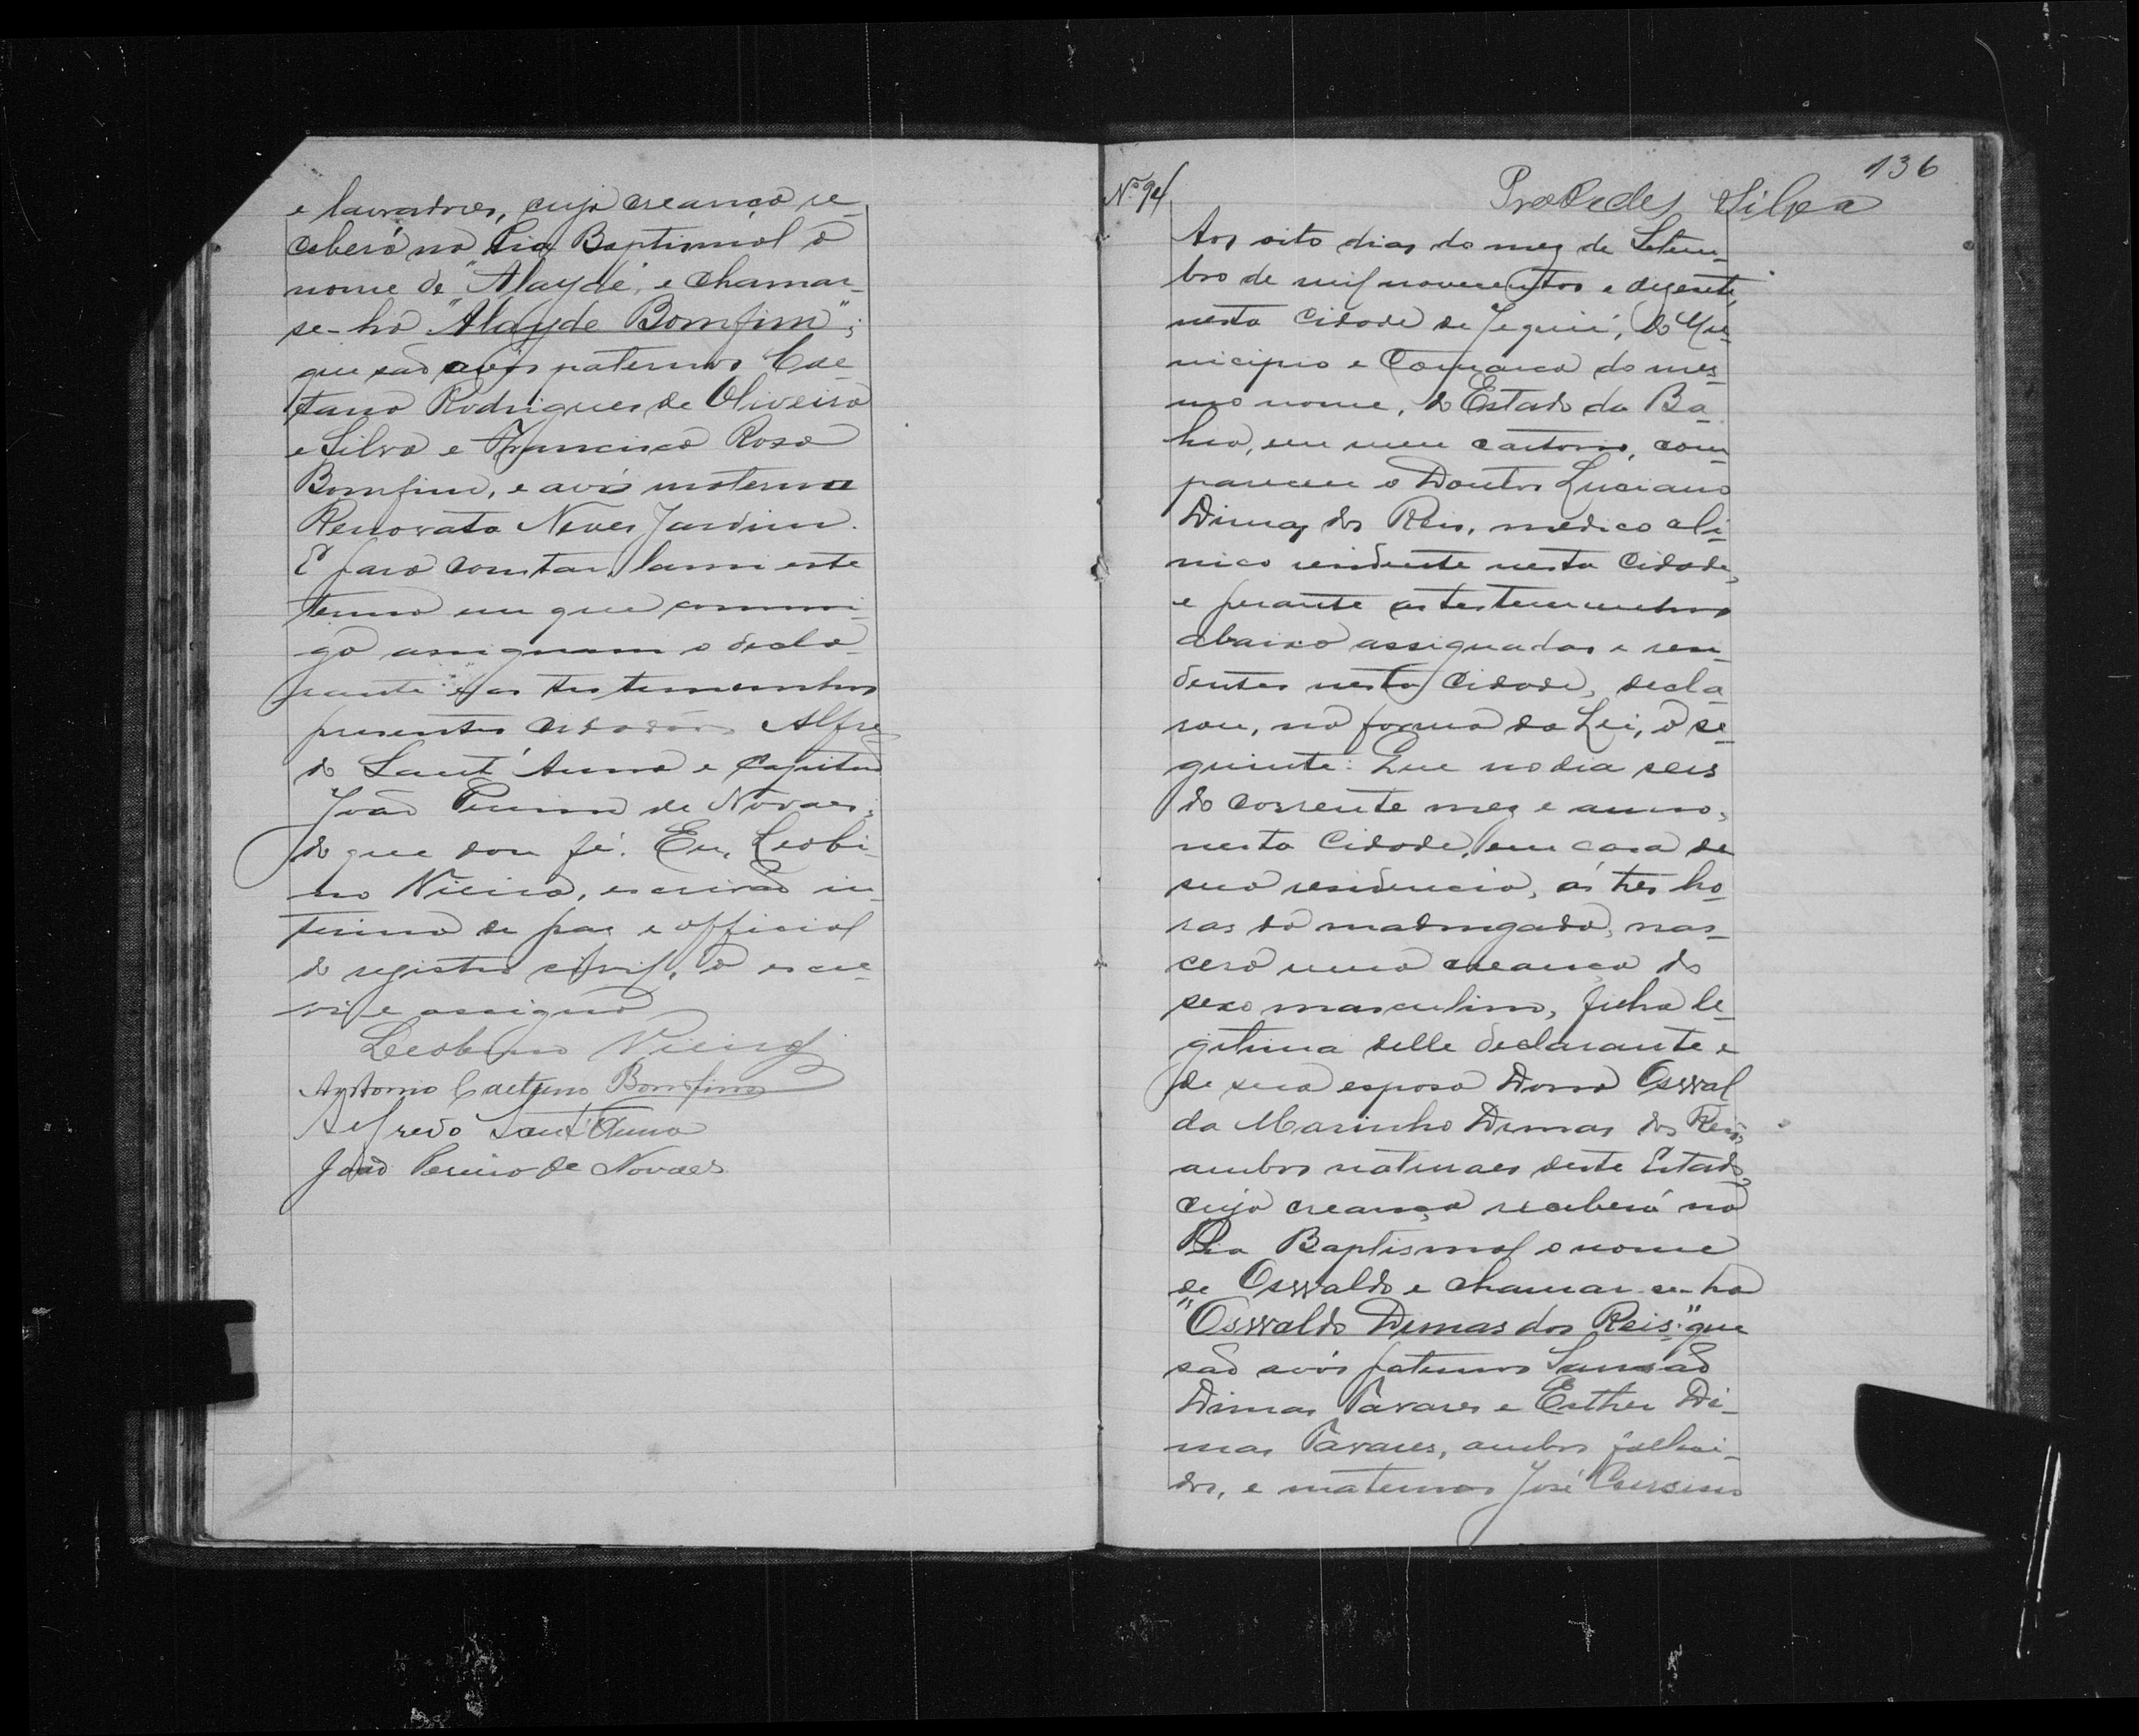 e lavradores, cuja creança re-
ceberá na Pia Baptismal o
nome de "Alayde", e chamar-
se-ha "Alayde Bomfim";
que são avós paternos Cae-
tano Rodrigues de Oliveira
e Silva e Francisca Rosa
Bomfim, e avó materna
Renovata Neves Jardim.
E para constar, lavrei este
termo em que commi-
go assignam o decla-
rante e as testemunhas
presentes cidadãos Alfre-
do Sant'Anna e Capitão
João Pereira de Novaes,
do que dou fé. Eu, Leobi-
no Vieira, escrivão in-
terino de paz e official
do registro civil, o escre-
vi e assigno
Leobino Vieira
Antonio Caetano Bomfim
Alfredo Sant'Anna
João Pereira de Novaes
136
Nº 94
Silva
Aos oito dias do mez de Setem-
bro de mil novecentos e dezesete,
nesta Cidade de Jequié, do Mu-
nicipio e Comarca do mes-
mo nome, do Estado da Ba-
hia, em meu cartorio, com-
pareceu o Doutor Luciano
Dimas dos Reis, medico cli-
nico residente nesta Cidade,
e perante as testemunhas
abaixo assignadas e resi-
dentes nesta Cidade, decla-
rou, na forma da Lei, o se-
guinte: Que no dia seis
do corrente mez e anno,
nesta Cidade, em casa de
sua residencia, ás tres ho-
ras da madrugada, nas-
cera uma creança do
sexo masculino, filha le-
gitima delle declarante e
de sua esposa Dona Oswal
da Marinho Dimas dos Reis,
ambos naturaes deste Estado,
cuja creança receberá na
Pia Baptismal o nome
de Oswaldo e chamar-se-ha
"Oswaldo Dimas dos Reis" que
são avós paternos Sansão
Dimas Tavares e Esther Di-
mas Tavares, ambos falleci-
dos, e maternos José